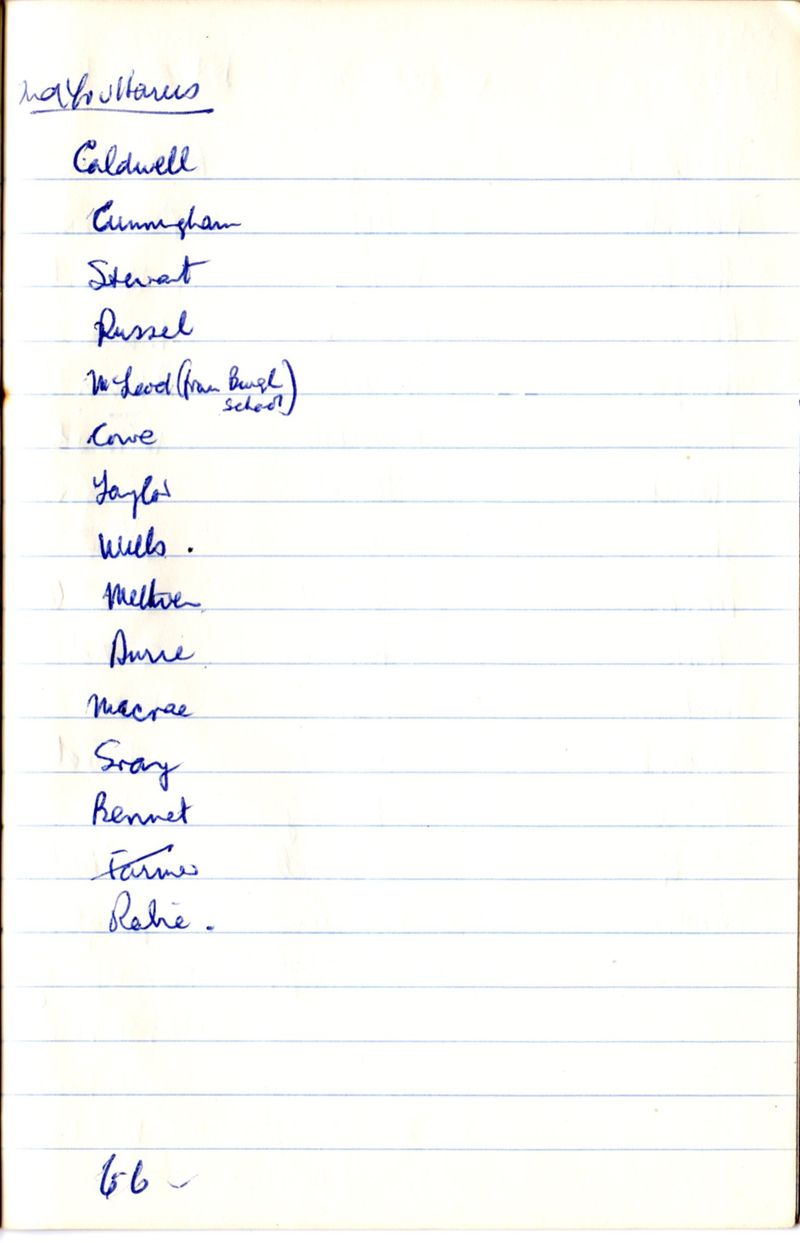 2nd Yr v Harris
Caldwell
Cunningham
Stewart
Russel
McLeod (from Burgh
school)
Cowe
Taylor
Wells .
Methven
Macrae
Gray
Bennet
Farmer
Rabie .
66